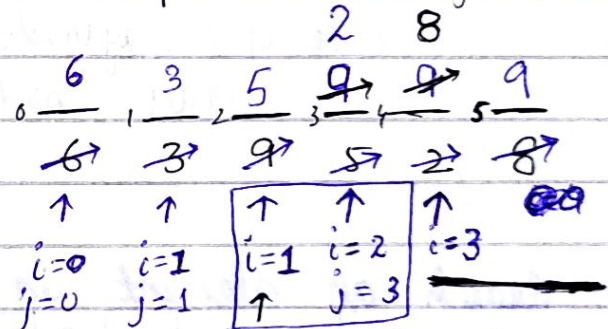 2 8
6 3 5 9 9 9
0 1 2 3 4 5
6 3 9 5 2 8
↑ ↑ ↑ ↑ ↑
i=0 i=1 i=1 i=2 i=3
j=0 j=1 ↑ j=3